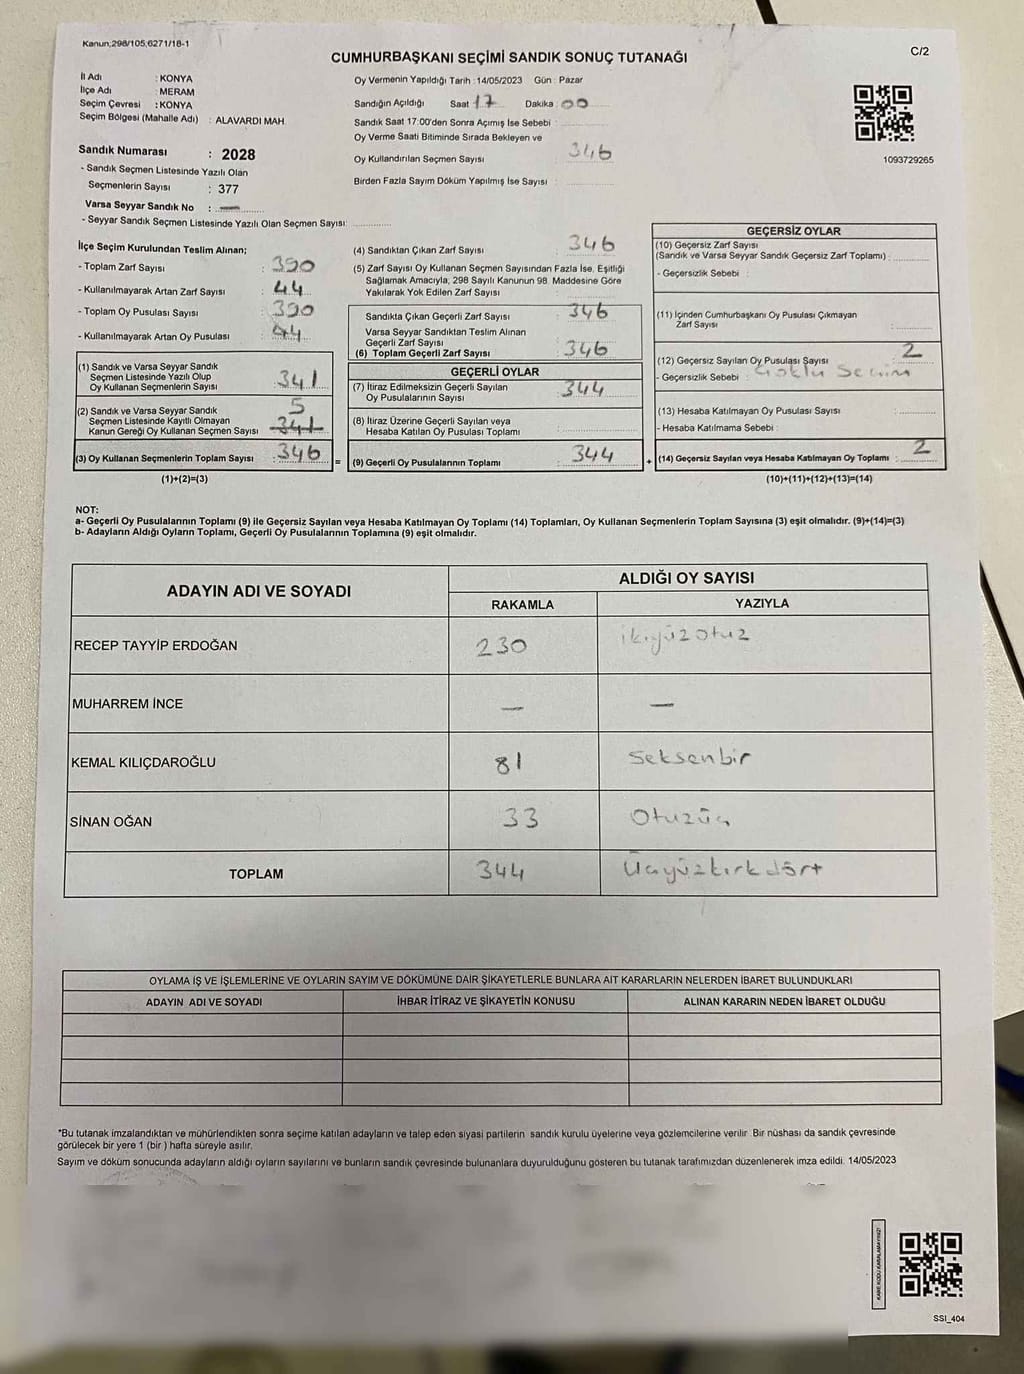 Kanun;298/105,6271/18-1
C/2
CUMHURBAŞKANI SEÇİMİ SANDIK SONUÇ TUTANAĞI
İl Adı : KONYA
İlçe Adı : MERAM
Seçim Çevresi : KONYA
Seçim Bölgesi (Mahalle Adı) : ALAVARDI MAH.
Sandık Numarası : 2028
- Sandık Seçmen Listesinde Yazılı Olan
Seçmenlerin Sayısı : 377
Varsa Seyyar Sandık No : —
- Seyyar Sandık Seçmen Listesinde Yazılı Olan Seçmen Sayısı:
Oy Vermenin Yapıldığı Tarih : 14/05/2023 Gün : Pazar
Sandığın Açıldığı Saat 17 Dakika : 00
Sandık Saat 17:00'den Sonra Açımış İse Sebebi :
Oy Verme Saati Bitiminde Sırada Bekleyen ve
Oy Kullandırılan Seçmen Sayısı 346
Birden Fazla Sayım Döküm Yapılmış İse Sayısı :
1093729265
İlçe Seçim Kurulundan Teslim Alınan;
- Toplam Zarf Sayısı : 390
- Kullanılmayarak Artan Zarf Sayısı : 44
- Toplam Oy Pusulası Sayısı : 390
- Kullanılmayarak Artan Oy Pusulası : 44
(1) Sandık ve Varsa Seyyar Sandık
Seçmen Listesinde Yazılı Olup
Oy Kullanan Seçmenlerin Sayısı : 341
(2) Sandık ve Varsa Seyyar Sandık 5
Seçmen Listesinde Kayıtlı Olmayan
Kanun Gereği Oy Kullanan Seçmen Sayısı : 341
(3) Oy Kullanan Seçmenlerin Toplam Sayısı : 346
(1)+(2)=(3)
=
(4) Sandıktan Çıkan Zarf Sayısı : 346
(5) Zarf Sayısı Oy Kullanan Seçmen Sayısından Fazla İse, Eşitliği
Sağlamak Amacıyla, 298 Sayılı Kanunun 98. Maddesine Göre
Yakılarak Yok Edilen Zarf Sayısı :
Sandıkta Çıkan Geçerli Zarf Sayısı : 346
Varsa Seyyar Sandıktan Teslim Alınan
Geçerli Zarf Sayısı :
(6) Toplam Geçerli Zarf Sayısı : 346
GEÇERLİ OYLAR
(7) İtiraz Edilmeksizin Geçerli Sayılan
Oy Pusulalarının Sayısı : 344
(8) İtiraz Üzerine Geçerli Sayılan veya
Hesaba Katılan Oy Pusulası Toplamı :
(9) Geçerli Oy Pusulalarının Toplamı : 344
+
GEÇERSİZ OYLAR
(10) Geçersiz Zarf Sayısı
(Sandık ve Varsa Seyyar Sandık Geçersiz Zarf Toplamı) :
- Geçersizlik Sebebi :
(11) İçinden Cumhurbaşkanı Oy Pusulası Çıkmayan
Zarf Sayısı :
(12) Geçersiz Sayılan Oy Pusulası Sayısı : 2
- Geçersizlik Sebebi : Çoklu Seçim
(13) Hesaba Katılmayan Oy Pusulası Sayısı :
- Hesaba Katılmama Sebebi :
(14) Geçersiz Sayılan veya Hesaba Katılmayan Oy Toplamı : 2
(10)+(11)+(12)+(13)=(14)
NOT:
a- Geçerli Oy Pusulalarının Toplamı (9) ile Geçersiz Sayılan veya Hesaba Katılmayan Oy Toplamı (14) Toplamları, Oy Kullanan Seçmenlerin Toplam Sayısına (3) eşit olmalıdır. (9)+(14)=(3)
b- Adayların Aldığı Oyların Toplamı, Geçerli Oy Pusulalarının Toplamına (9) eşit olmalıdır.
ADAYIN ADI VE SOYADI ALDIĞI OY SAYISI
RAKAMLA YAZIYLA
RECEP TAYYİP ERDOĞAN 230 ikiyüzotuz
MUHARREM İNCE — —
KEMAL KILIÇDAROĞLU 81 Seksenbir
SİNAN OĞAN 33 Otuzüç
TOPLAM 344 Üçyüzkırkdört
OYLAMA İŞ VE İŞLEMLERİNE VE OYLARIN SAYIM VE DÖKÜMÜNE DAİR ŞİKAYETLERLE BUNLARA AİT KARARLARIN NELERDEN İBARET BULUNDUKLARI
ADAYIN ADI VE SOYADI İHBAR İTİRAZ VE ŞİKAYETİN KONUSU ALINAN KARARIN NEDEN İBARET OLDUĞU
*Bu tutanak imzalandıktan ve mühürlendikten sonra seçime katılan adayların ve talep eden siyasi partilerin sandık kurulu üyelerine veya gözlemcilerine verilir. Bir nüshası da sandık çevresinde
görülecek bir yere 1 (bir ) hafta süreyle asılır.
Sayım ve döküm sonucunda adayların aldığı oyların sayılarını ve bunların sandık çevresinde bulunanlara duyurulduğunu gösteren bu tutanak tarafımızdan düzenlenerek imza edildi. 14/05/2023
KARE KODU KARALAMAYINIZ!
SSI_404